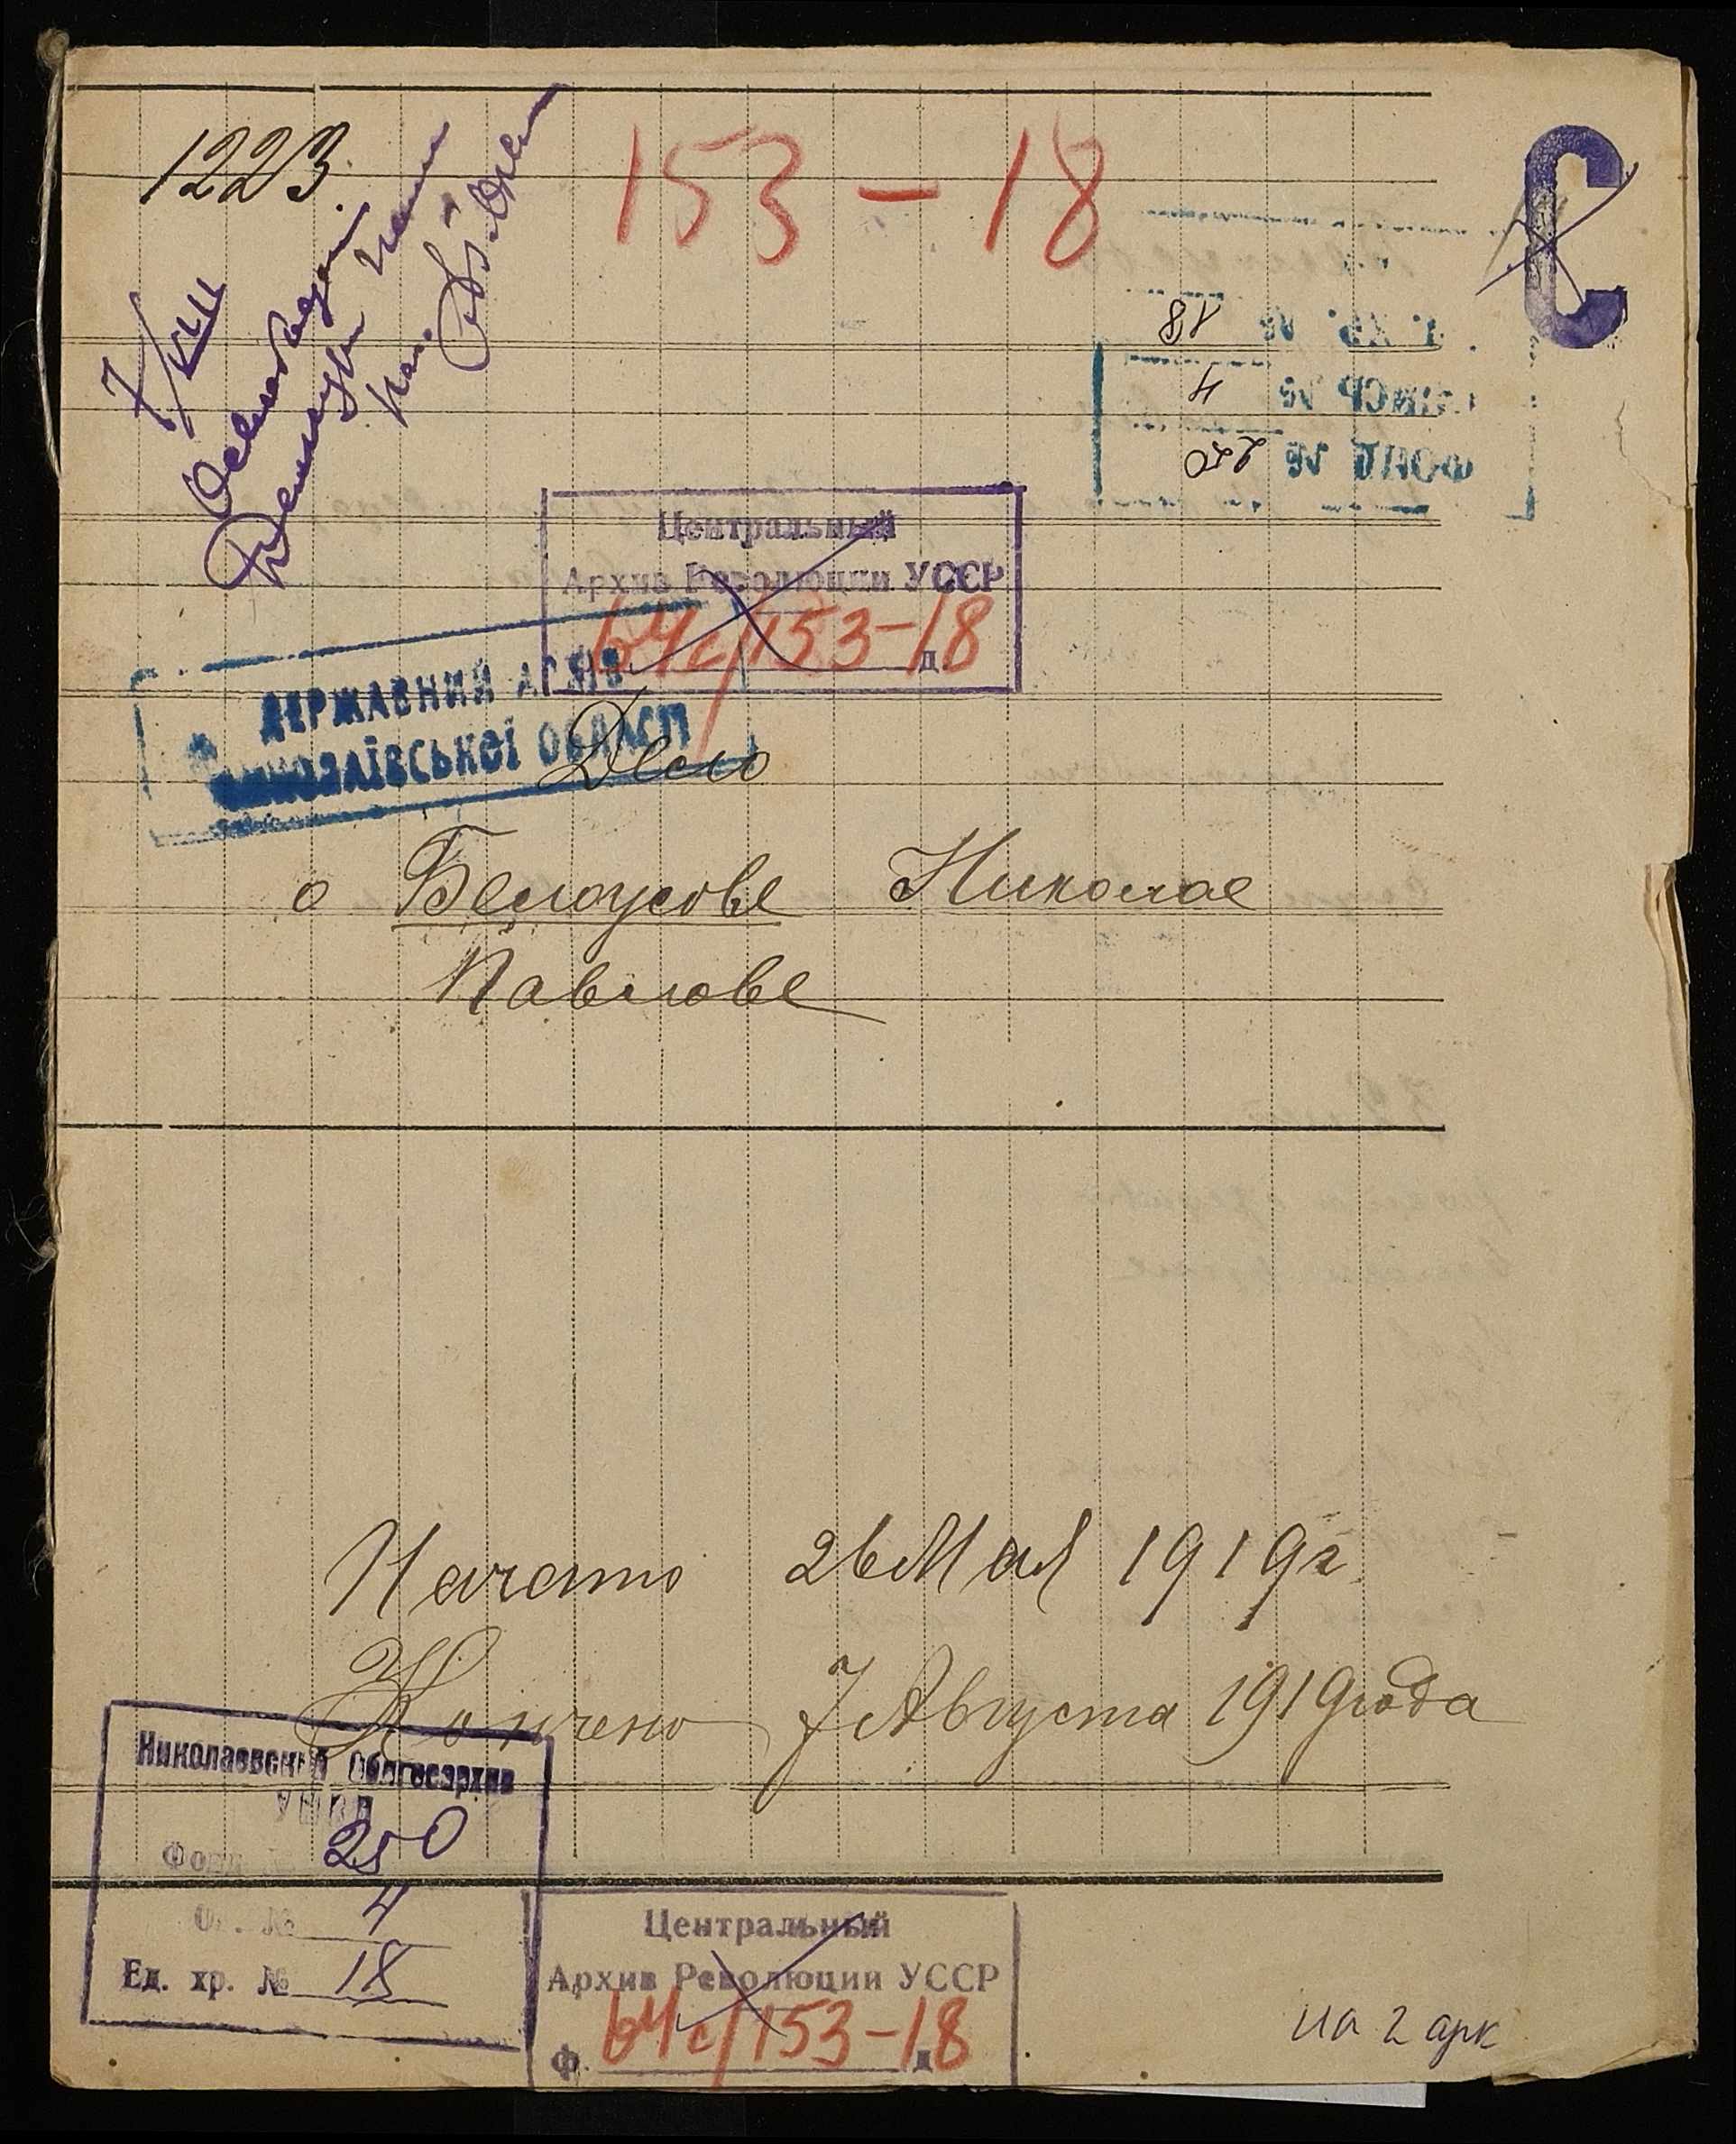 1223.
153-18
С
7/VIII
Центральный
Архив Революции УССР
64с/153-18
д.
ДЕРЖАВНИЙ АРХІВ
МИКОЛАЇВСЬКОЇ ОБЛАСТІ
Дело
о Белоусове Николае
Павлове
Начато 26 Мая 1919 г.
Кончено 7 Августа 1919 года
Николаевский Облгосархив
УНКВД
Фонд 250
Оп. № 4
Ед. хр. № 18
Центральный
Архив Революции УССР
ф. 64с/153-18
д.
на 2 арк
Ед. ХР. № 18
ОПИСЬ № 4
ФОНД № 250